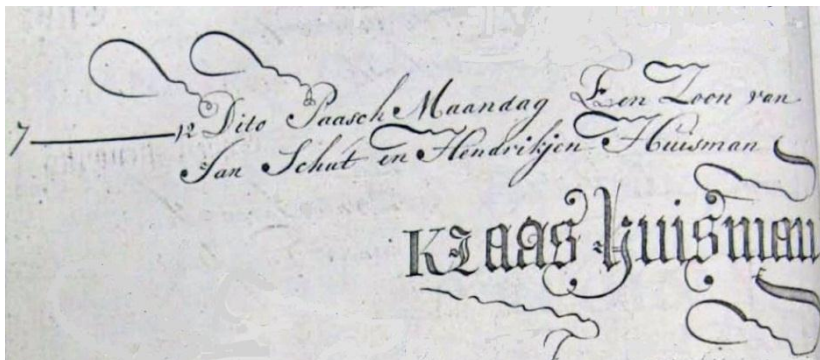 12 Dito Paasch Maandag Een Zoon van
7 Jan Schut en Hendrikjen Huisman
Klaas Huisman